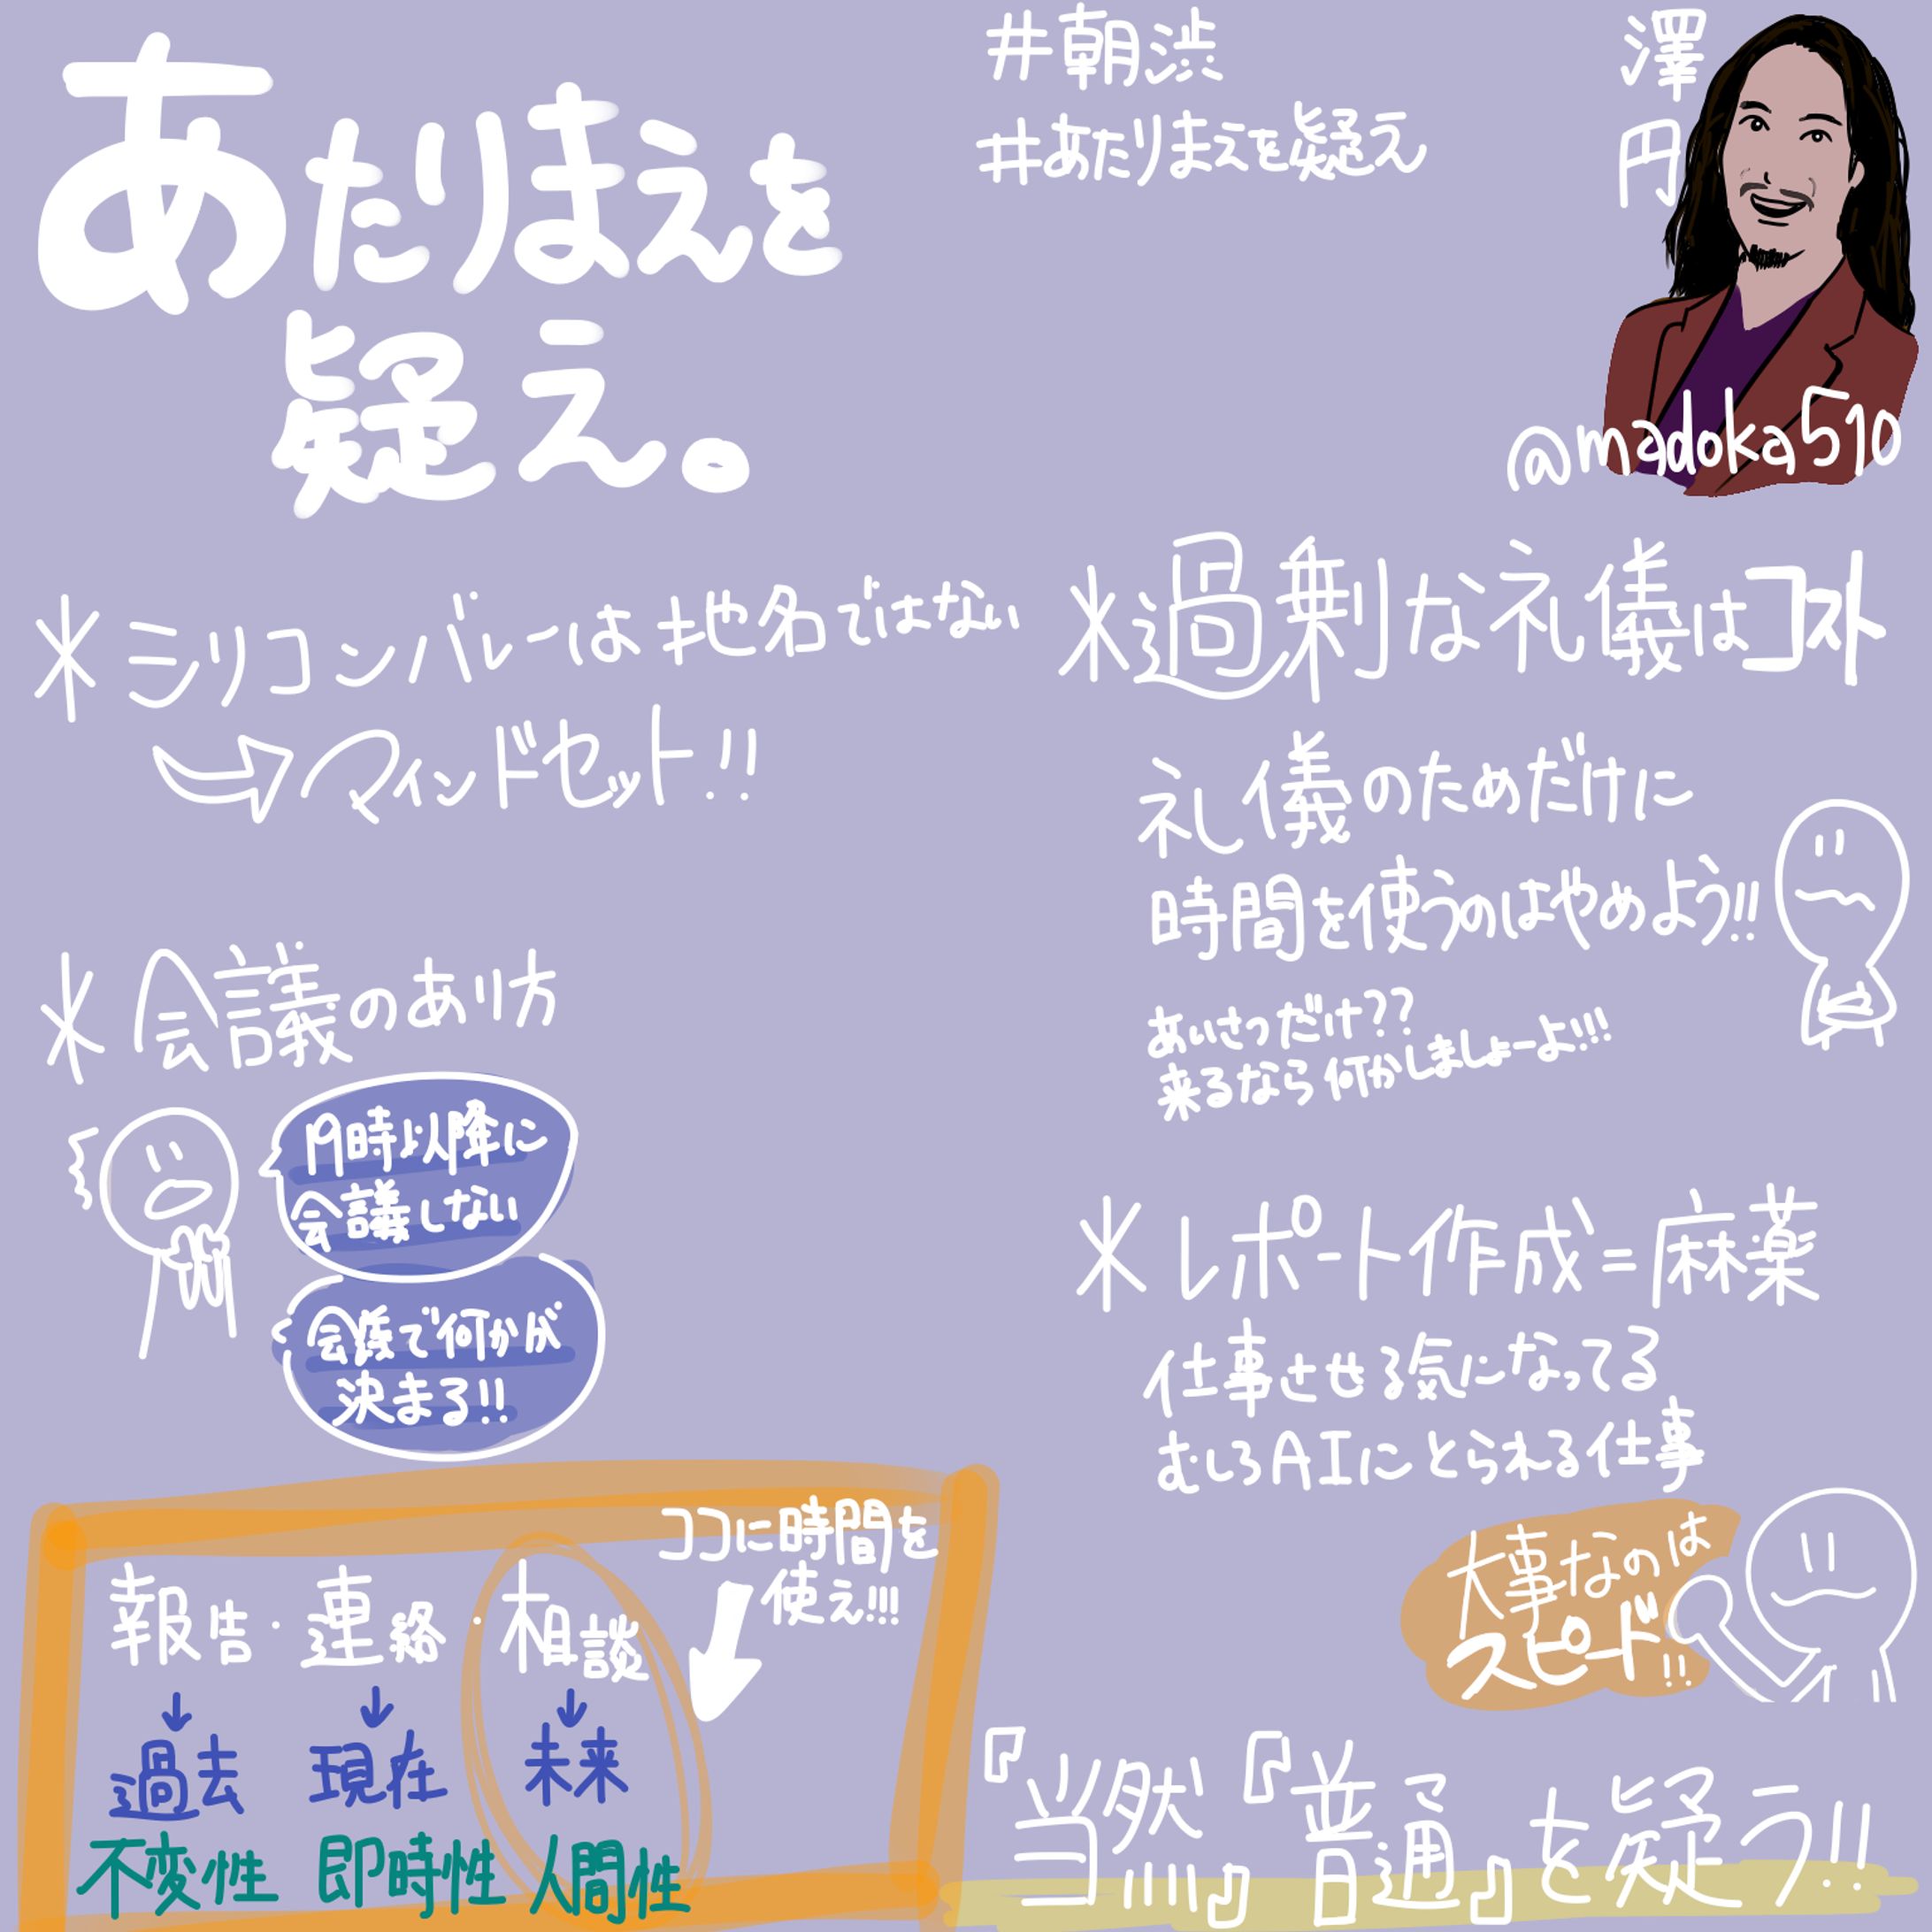 あたりまえを
疑え。
#朝渋
#あたりまえを疑え
澤円
@madoka510
*シリコンバレーは地名ではない
マインドセット!!
*会議のあり方
19時以降に
会議しない
会議で何かが
決まる!!
ココに時間を
使え!!!
報告・連絡・相談
↓ ↓ ↓
過去 現在 未来
不変性 即時性 人間性
*過剰な礼儀はコスト
礼儀のためだけに
時間を使うのはやめよう!!
あいさつだけ??
来るなら何かしましょーよ!!!
*レポート作成=麻薬
仕事させる気になってる
むしろAIにとられる仕事
大事なのは
スピード!!
『当然』『普通』を疑う!!